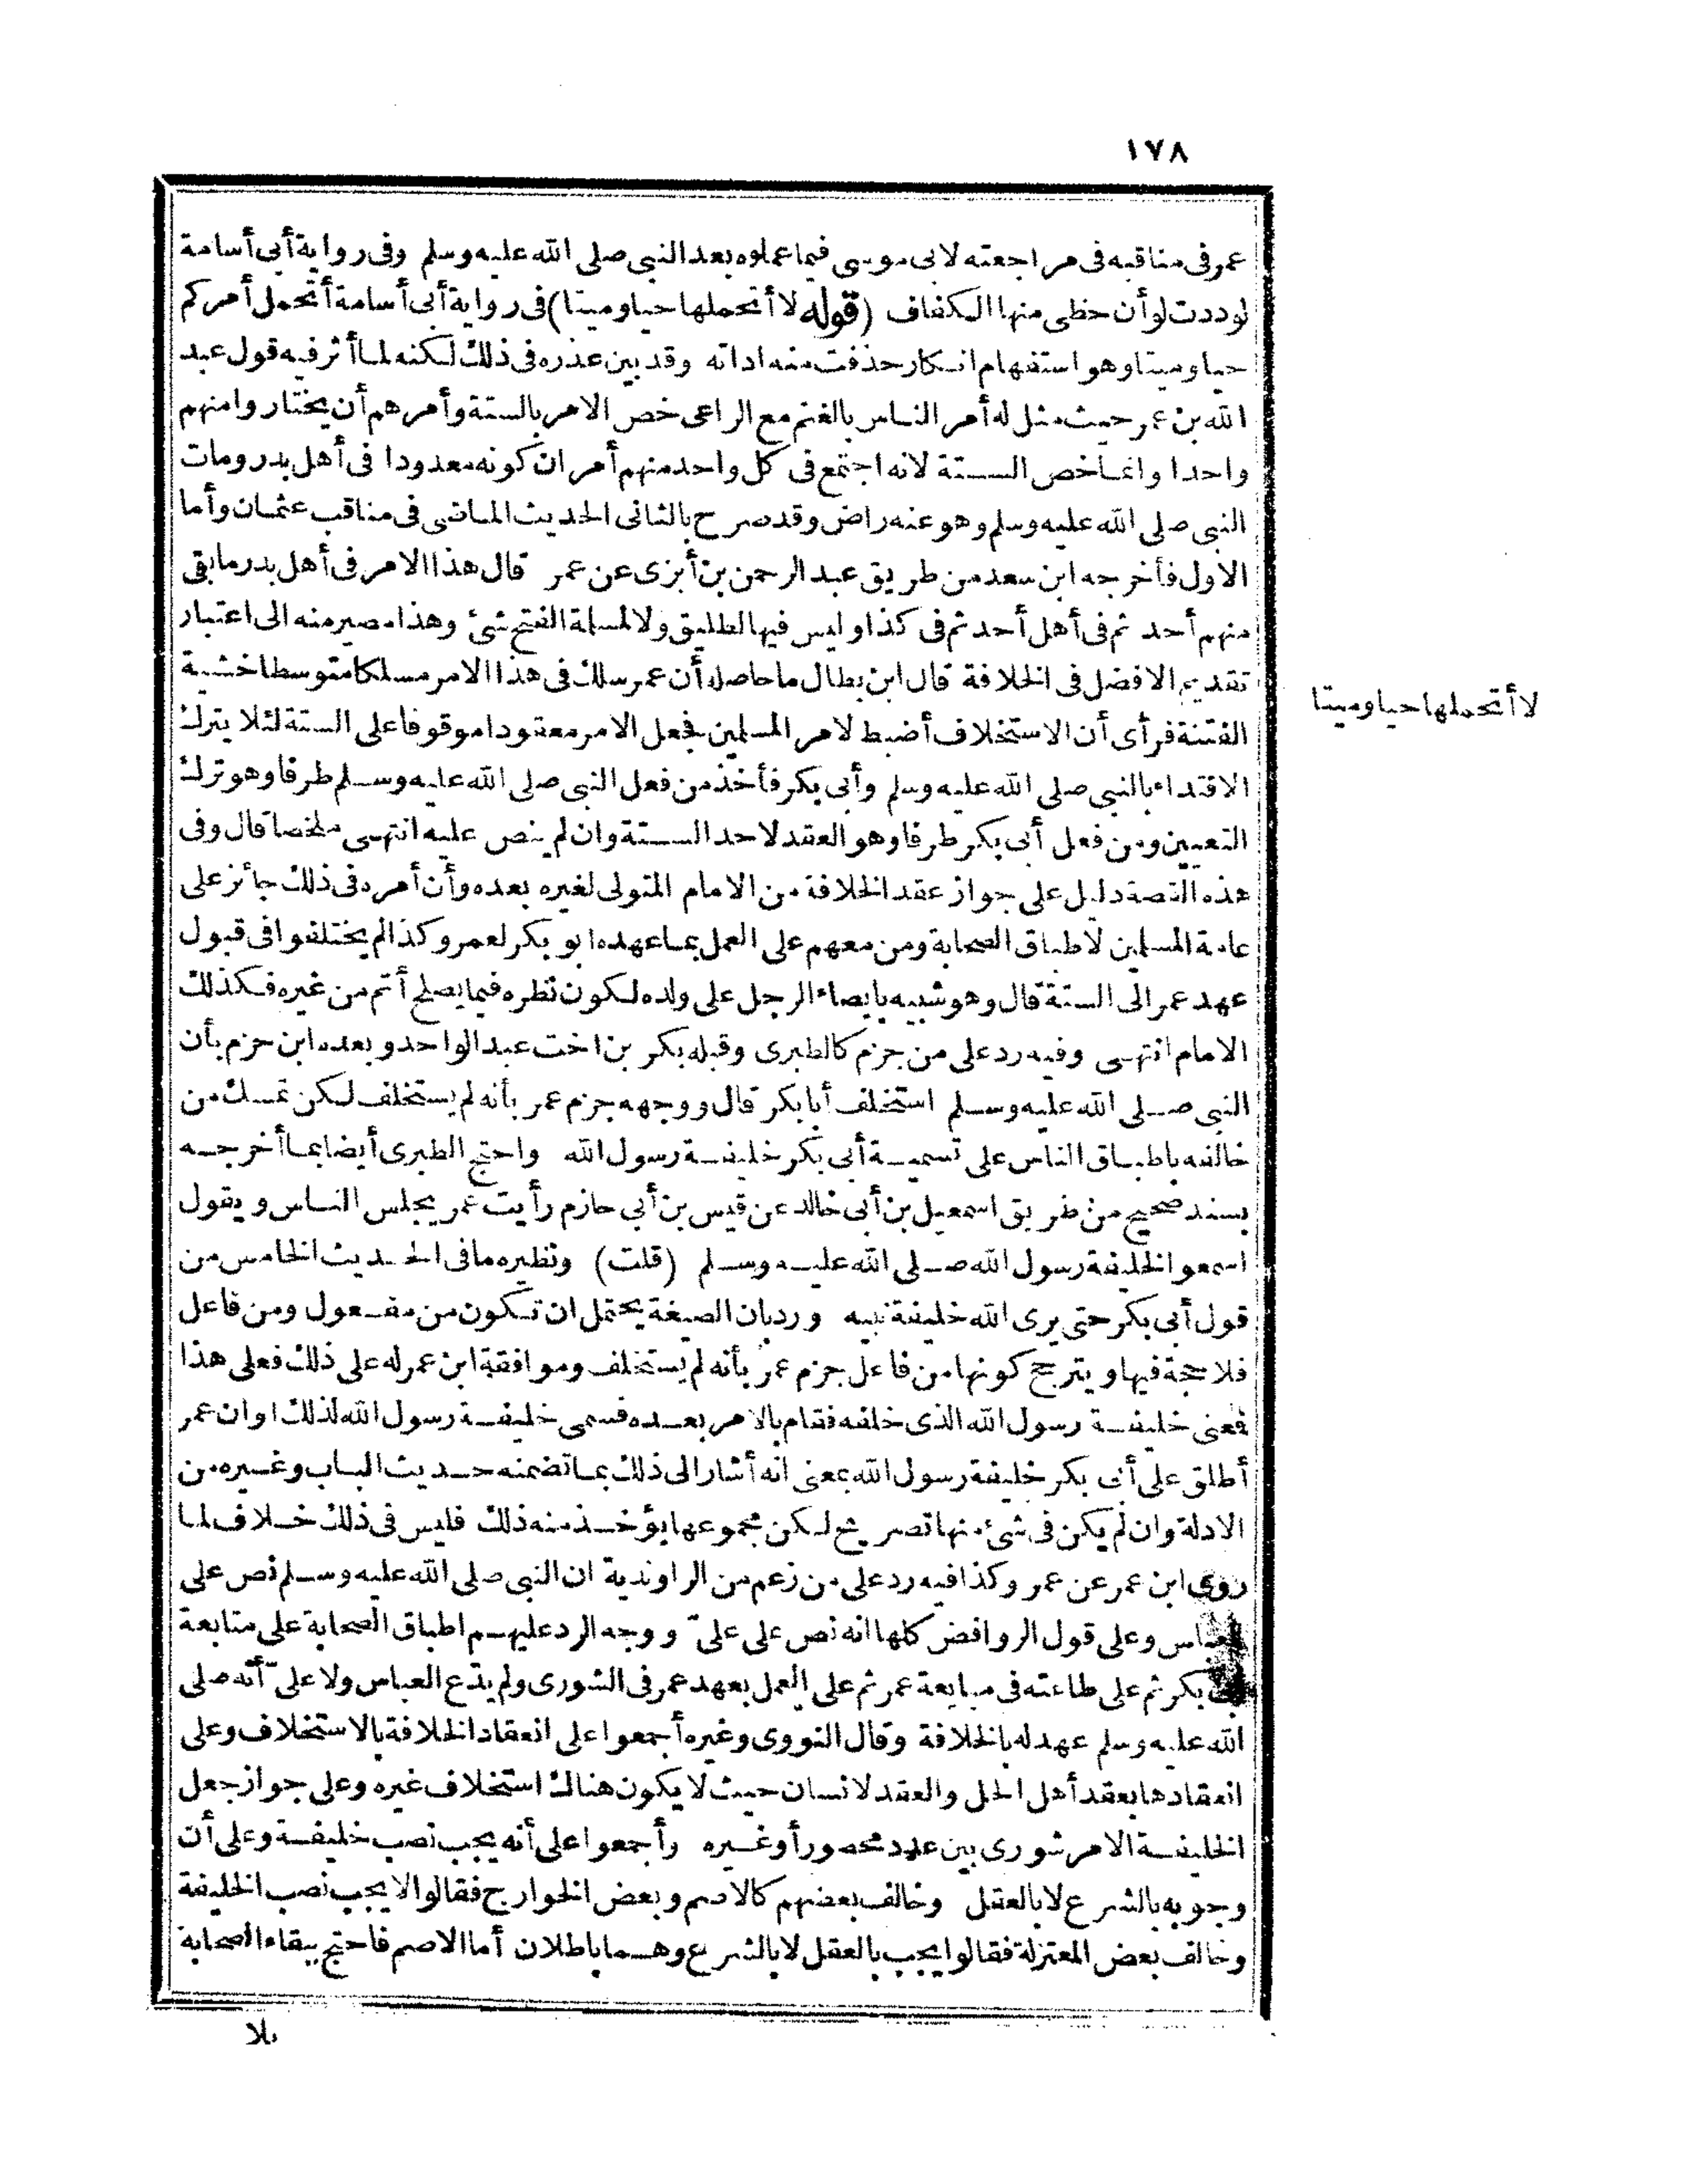 ١٧٨
عمر فى مناقبه فى مراجعته لابى موسى فيما عملوه بعد النبى صلى الله عليه وسلم وفى رواية أبى أسامة
لوددت لو أن حظى منها الكفاف (قوله لا أتحملها حيا وميتا) فى رواية أبى أسامة أتحمل أمركم
حيا وميتا وهو استفهام انكار حذفت منه اداته وقد بين عذره فى ذلك لكنه لما أثر فيه قول عبد
الله بن عمر حيث مثل له أمر الناس بالغنم مع الراعى خص الامر بالستة وأمرهم أن يختاروا منهم
واحدا وانما خص الستة لانه اجتمع فى كل واحد منهم أمران كونه معدودا فى أهل بدر ومات
النبى صلى الله عليه وسلم وهو عنه راض وقد صرح بالثانى الحديث الماضى فى مناقب عثمان وأما
الاول فأخرجه ابن سعد من طريق عبد الرحمن بن أبزى عن عمر قال هذا الامر فى أهل بدر ما بقى
منهم أحد ثم فى أهل أحد ثم فى كذا وليس فيها لطليق ولا لمسلمة الفتح شئ وهذا مصير منه الى اعتبار
تقديم الافضل فى الخلافة قال ابن بطال ما حاصله أن عمر سلك فى هذا الامر مسلكا متوسطا خشية
لا أتحملها حيا وميتا
الفتنة فرأى أن الاستخلاف أضبط لامر المسلمين فجعل الامر معقودا موقوفا على الستة لئلا يترك
الاقتداء بالنبى صلى الله عليه وسلم وأبى بكر فأخذ من فعل النبى صلى الله عليه وسلم طرفا وهو ترك
التعيين ومن فعل أبى بكر طرفا وهو العقد لاحد الستة وان لم ينص عليه انتهى ملخصا قال وفى
هذه القصة دليل على جواز عقد الخلافة من الامام المتولى لغيره بعده وأن أمره فى ذلك جائز على
عامة المسلمين لاطباق الصحابة ومن معهم على العمل بما عهده ابو بكر لعمر وكذا لم يختلفوا فى قبول
عهد عمر الى الستة قال وهو شبيه بايصاء الرجل على ولده لكون نظره فيما يصلح أتم من غيره فكذلك
الامام انتهى وفيه رد على من جزم كالطبرى وقبله بكر بن اخت عبد الواحد وبعده ابن حزم بأن
النبى صلى الله عليه وسلم استخلف أبا بكر قال ووجهه جزم عمر بأنه لم يستخلف لكن تمسك من
خالفه باطباق الناس على تسمية أبى بكر خليفة رسول الله واحتج الطبرى أيضا بما أخرجه
بسند صحيح من طريق اسمعيل بن أبى خالد عن قيس بن أبى حازم رأيت عمر يجلس الناس ويقول
اسمعوا لخليفة رسول الله صلى الله عليه وسلم (قلت) ونظيره ما فى الحديث الخامس من
قول أبى بكر حتى يرى الله خليفة نبيه ورد بان الصيغة يحتمل ان تكون من مفعول ومن فاعل
فلا حجة فيها ويترجح كونها من فاعل جزم عمر بأنه لم يستخلف وموافقة ابن عمر له على ذلك فعلى هذا
فمعنى خليفة رسول الله الذى خلفه فقام بالامر بعده فسمى خليفة رسول الله لذلك او ان عمر
أطلق على أبى بكر خليفة رسول الله بمعنى انه أشار الى ذلك بما تضمنه حديث الباب وغيره من
الادلة وان لم يكن فى شئ منها تصريح لكن مجموعها يؤخذ منه ذلك فليس فى ذلك خلاف لما
روى ابن عمر عن عمر وكذا فيه رد على من زعم من الراوندية ان النبى صلى الله عليه وسلم نص على
العباس وعلى قول الروافض كلها انه نص على علىّ ووجه الرد عليهم اطباق الصحابة على متابعة
أبى بكر ثم على طاعته فى مبايعة عمر ثم على العمل بعهد عمر فى الشورى ولم يدّع العباس ولا علىّ أنه صلى
الله عليه وسلم عهد له بالخلافة وقال النووى وغيره أجمعوا على انعقاد الخلافة بالاستخلاف وعلى
انعقادها بعقد أهل الحل والعقد لانسان حيث لا يكون هناك استخلاف غيره وعلى جواز جعل
الخليفة الامر شورى بين عدد محصور أو غيره وأجمعوا على أنه يجب نصب خليفة وعلى أن
وجوبه بالشرع لا بالعقل وخالف بعضهم كالاصم وبعض الخوارج فقالوا لا يجب نصب الخليفة
وخالف بعض المعتزلة فقالوا يجب بالعقل لا بالشرع وهما باطلان أما الاصم فاحتج ببقاء الصحابة
بلا